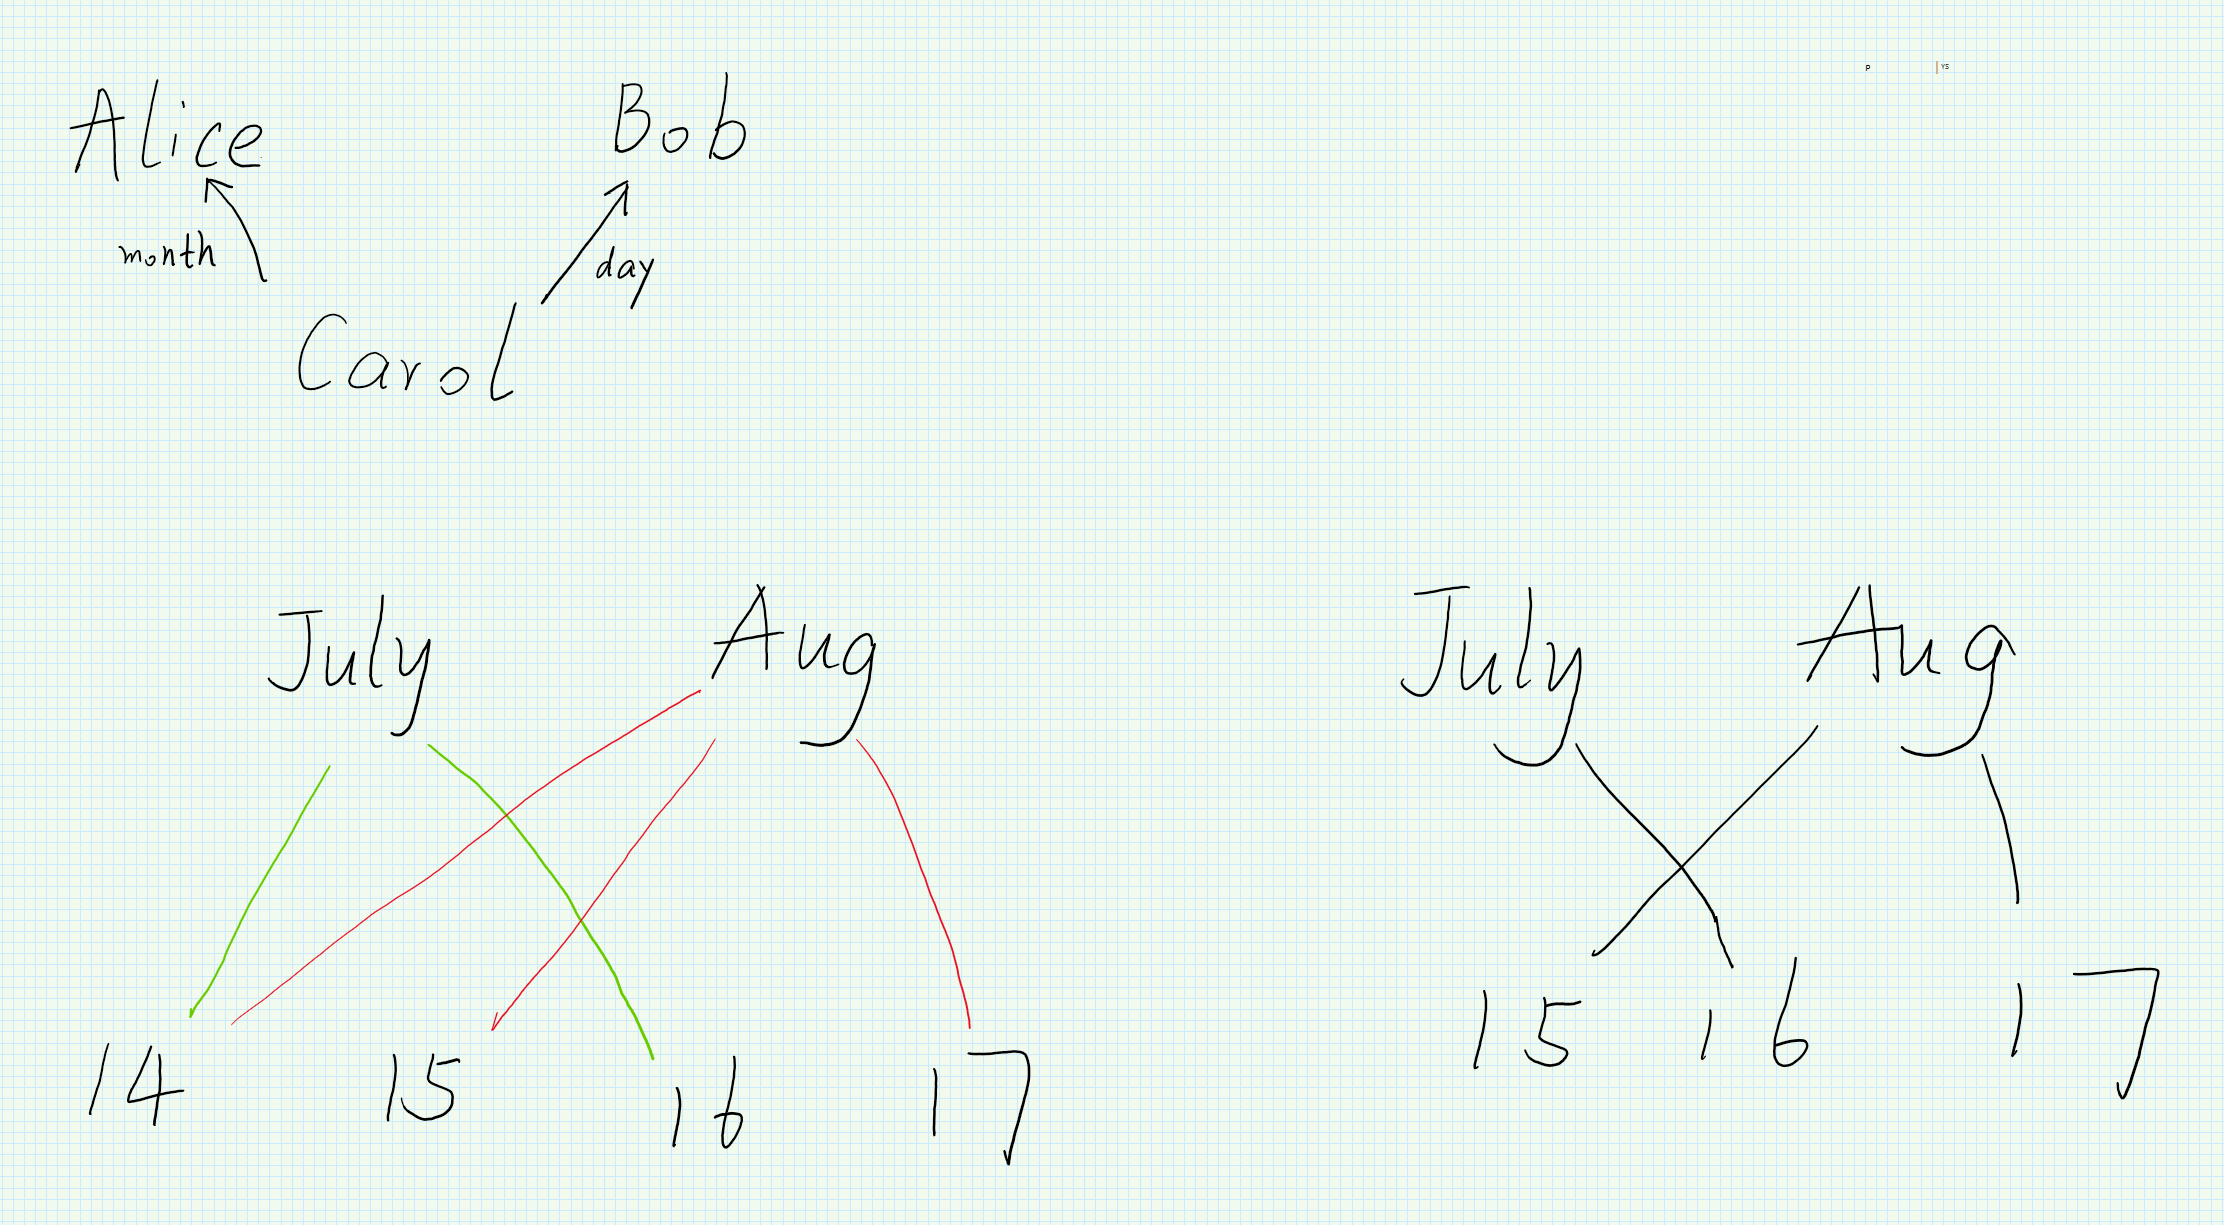 P YS
Alice Bob
month day
Carol
July Aug
14 15 16 17
July Aug
15 16 17